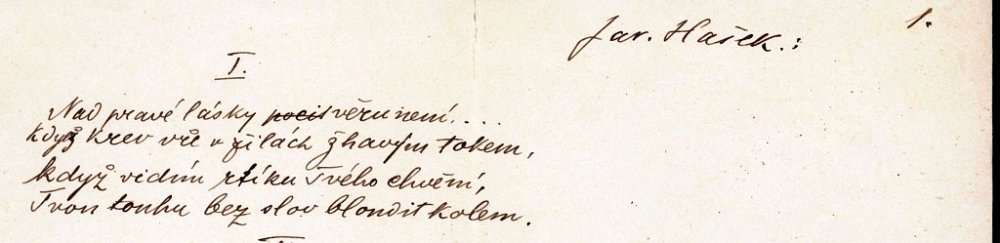 Jar. Hašek.:
1.
I.
Nad pravé lásky pocit věru není....
když krev vře v žilách žhavým tokem,
když vidím rtíku Tvého chvění,
Tvou touhu bez slov bloudit kolem.